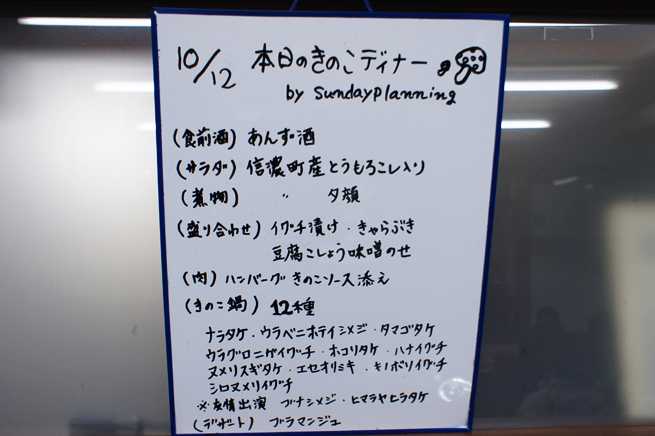 10/12 本日のきのこディナー
by Sundayplanning
(食前酒) あんず酒
(サラダ) 信濃町産とうもろこし入り
(煮物) 〃 夕顔
(盛り合わせ) イグチ漬け・きゃらぶき
豆腐こしょう味噌のせ
(肉) ハンバーグきのこソース添え
(きのこ鍋) 12種
ナラタケ・ウラベニホテイシメジ・タマゴタケ
ウラグロニガイグチ・ホコリタケ・ハナイグチ
ヌメリスギタケ・エセオリミキ・キノボリイグチ
シロヌメリイグチ
※友情出演 ブナシメジ・ヒマラヤヒラタケ
(デザート) ブラマンジュ